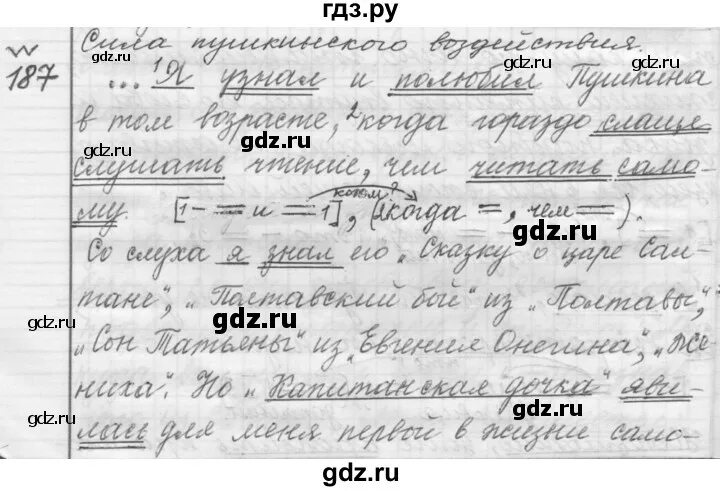 гдз.ру
Сила пушкинского воздействия.
187 ... ¹Я узнал и полюбил Пушкина
в том возрасте, ²когда гораздо слаще
слушать чтение, чем читать само-
му. [1 – = и = 1], (когда =, чем =).
каком?
Со слуха я знал его „Сказку о царе Сал-
тане", „Полтавский бой" из „Полтавы",
„Сон Татьяны" из „Евгения Онегина", „Же-
ниха". Но „Капитанская дочка" яви-
лась для меня первой в жизни само-
gdz.ru
gdz.ru
gdz.ru
gdz.ru
gdz.ru
gdz.ru
gdz.ru
gdz.ru
gdz.ru
gdz.ru
gdz.ru
gdz.ru
gdz.ru